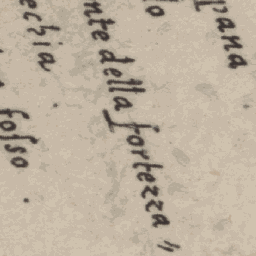 pana
lo
nte della fortezza "
echia .
fosso .